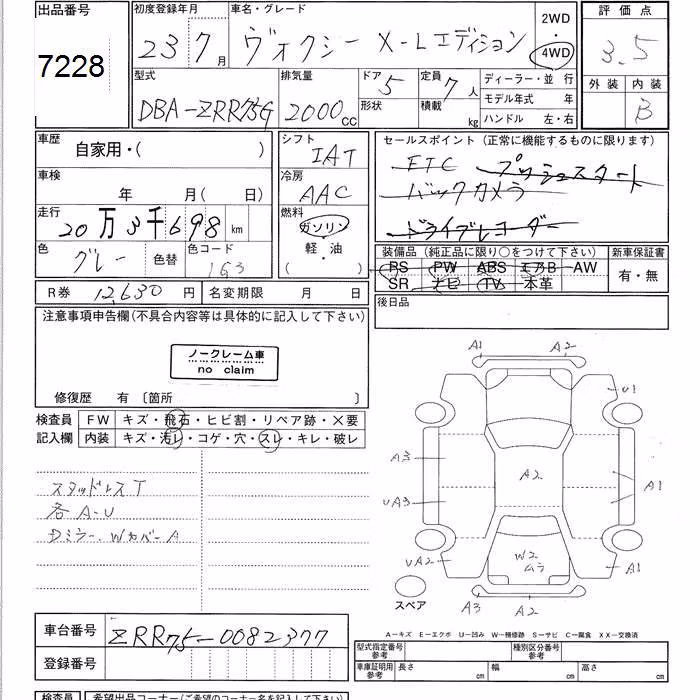 出品番号 初度登録年月 車名・グレード 2WD 評価点
7228 23 7月 ヴォクシー X-Lエディション 4WD 3.5
型式 排気量 ドア 5 定員 7人 ディーラー・並行 外装 内装
DBA-ZRR75G 2000cc 形状 積載 kg モデル年式 年 B
ハンドル 左・右
車歴 シフト セールスポイント (正常に機能するものに限ります)
自家用・( ) IAT ETC プッシュスタート
車検 冷房 バックカメラ
年 月( 日) AAC
走行 燃料 ドライブレコーダー
20万3千698km ガソリン
色 グレー 色替 色コード 1G3 軽・油 ( )
装備品 (純正品に限り○をつけて下さい) 新車保証書
PS PW ABS エアB AW 有・無
SR ナビ TV 本革
R券 12630円 名変期限 月 日 後日品
注意事項申告欄(不具合内容等は具体的に記入して下さい)
ノークレーム車
no claim
修復歴 有 〔箇所 〕
検査員 FW キズ・飛石・ヒビ割・リペア跡・×要
記入欄 内装 キズ・汚レ・コゲ・穴・スレ・キレ・破レ
A1 A2
U1
A3 A2 A1
UA3
スタッドレスT
各A-U
Dミラー、WカバーA
UA2 W2 ムラ A1
スペア A3 A2
A-キズ E-エクボ U-凹み W-補修跡 S-サビ C-腐食 XX-交換済
車台番号 ZRR75-0082377
登録番号
型式指定番号 参考 種別区分番号 参考
車庫証明用 参考 長さ cm 幅 cm 高さ cm
検査員 希望出品コーナー(ご希望のコーナー名を記入下さい)